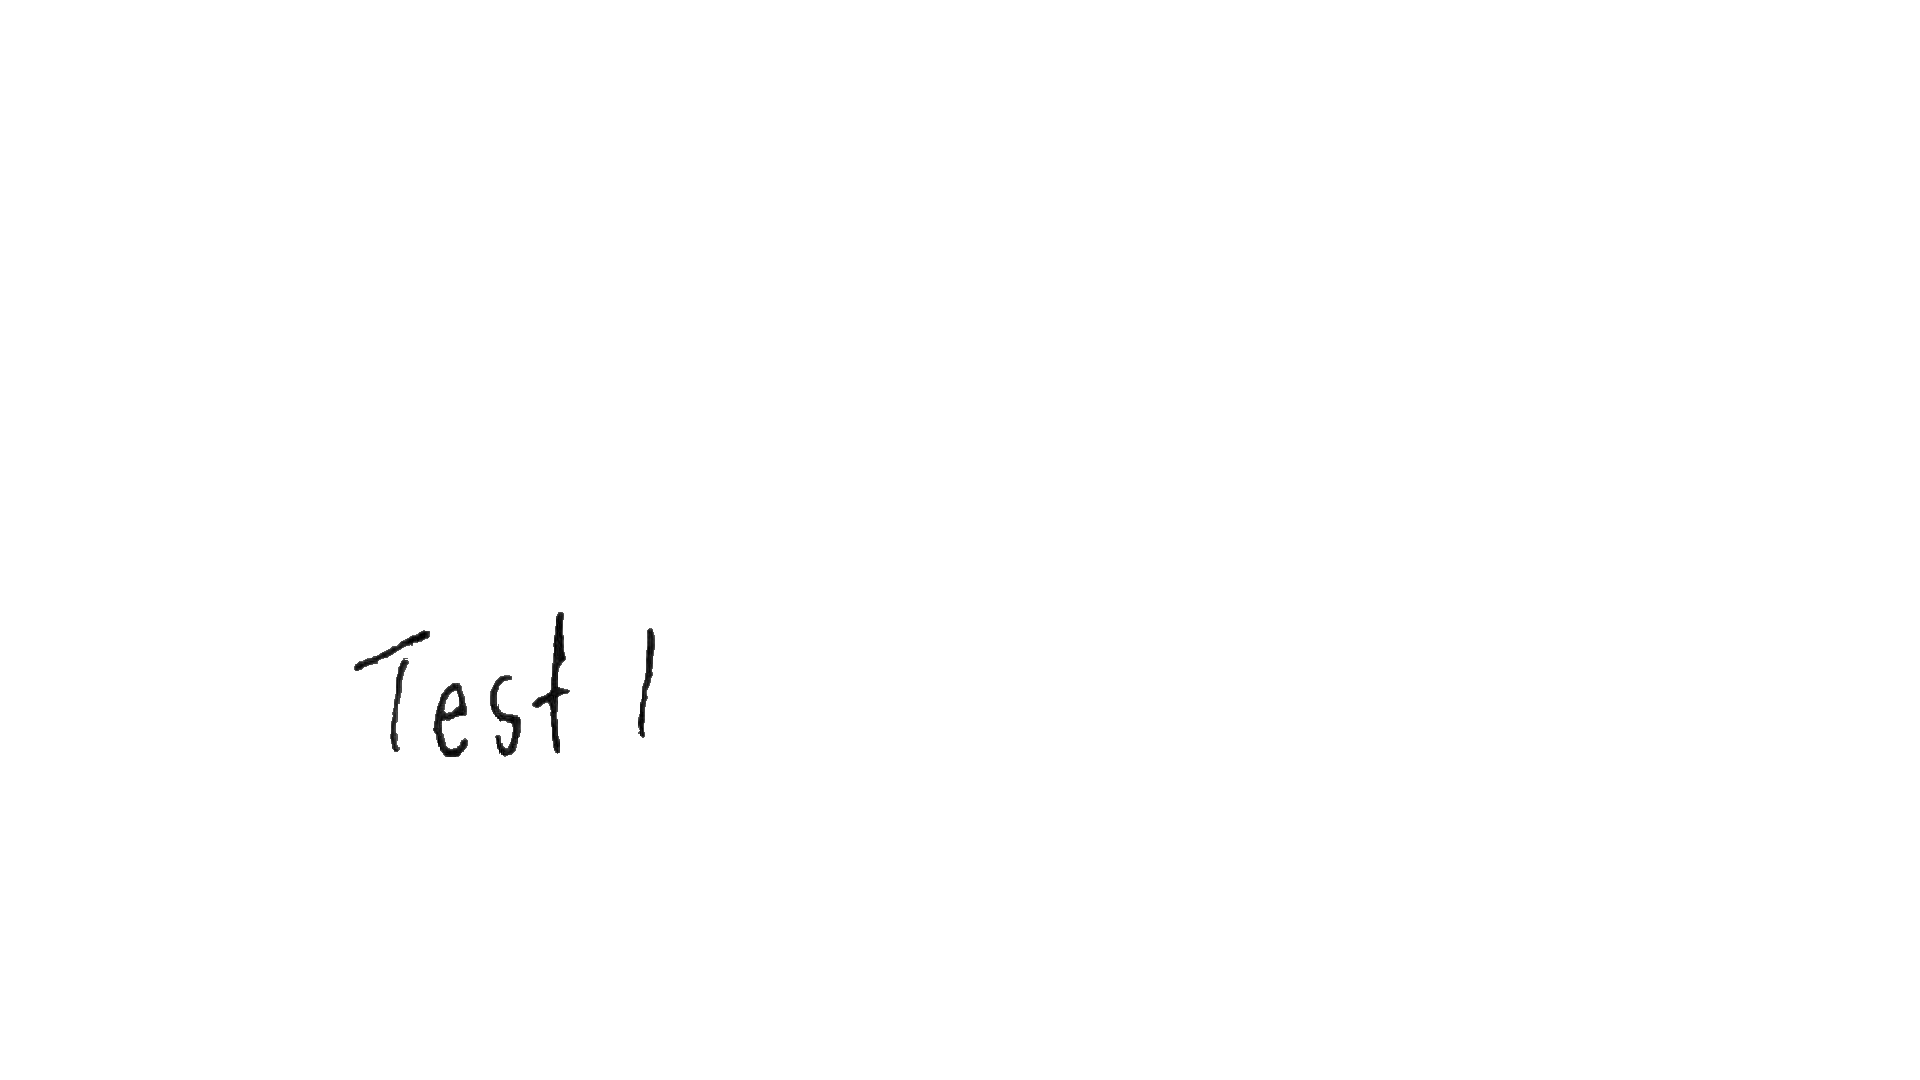 Test 1